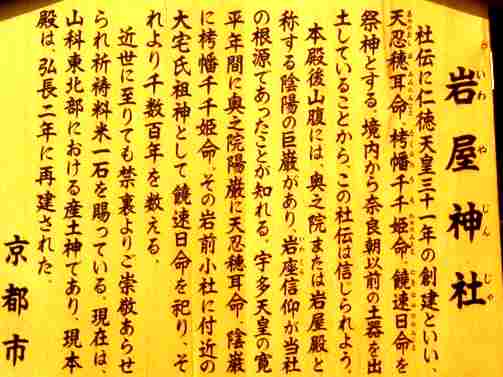 岩屋神社
いわやじんじゃ
社伝に仁徳天皇三十一年の創建といい、
天忍穂耳命、栲幡千千姫命、饒速日命を
祭神とする。境内から奈良朝以前の土器を出
土していることから、この社伝は信じられよう。
本殿後山腹には、奥之院または岩屋殿と
称する陰陽の巨巌があり、岩座信仰が当社
の根源であったことが知れる。宇多天皇の寛
平年間に奥之院陽巌に天忍穂耳命、陰巌
に栲幡千千姫命、その岩前小社に付近の
大宅氏祖神として饒速日命を祀り、そ
れより千数百年を数える。
近世に至りても禁裏よりご崇敬あらせ
られ祈祷料米一石を賜っている。現在は、
山科東北部における産土神であり、現本
殿は、弘長二年に再建された。
京都市